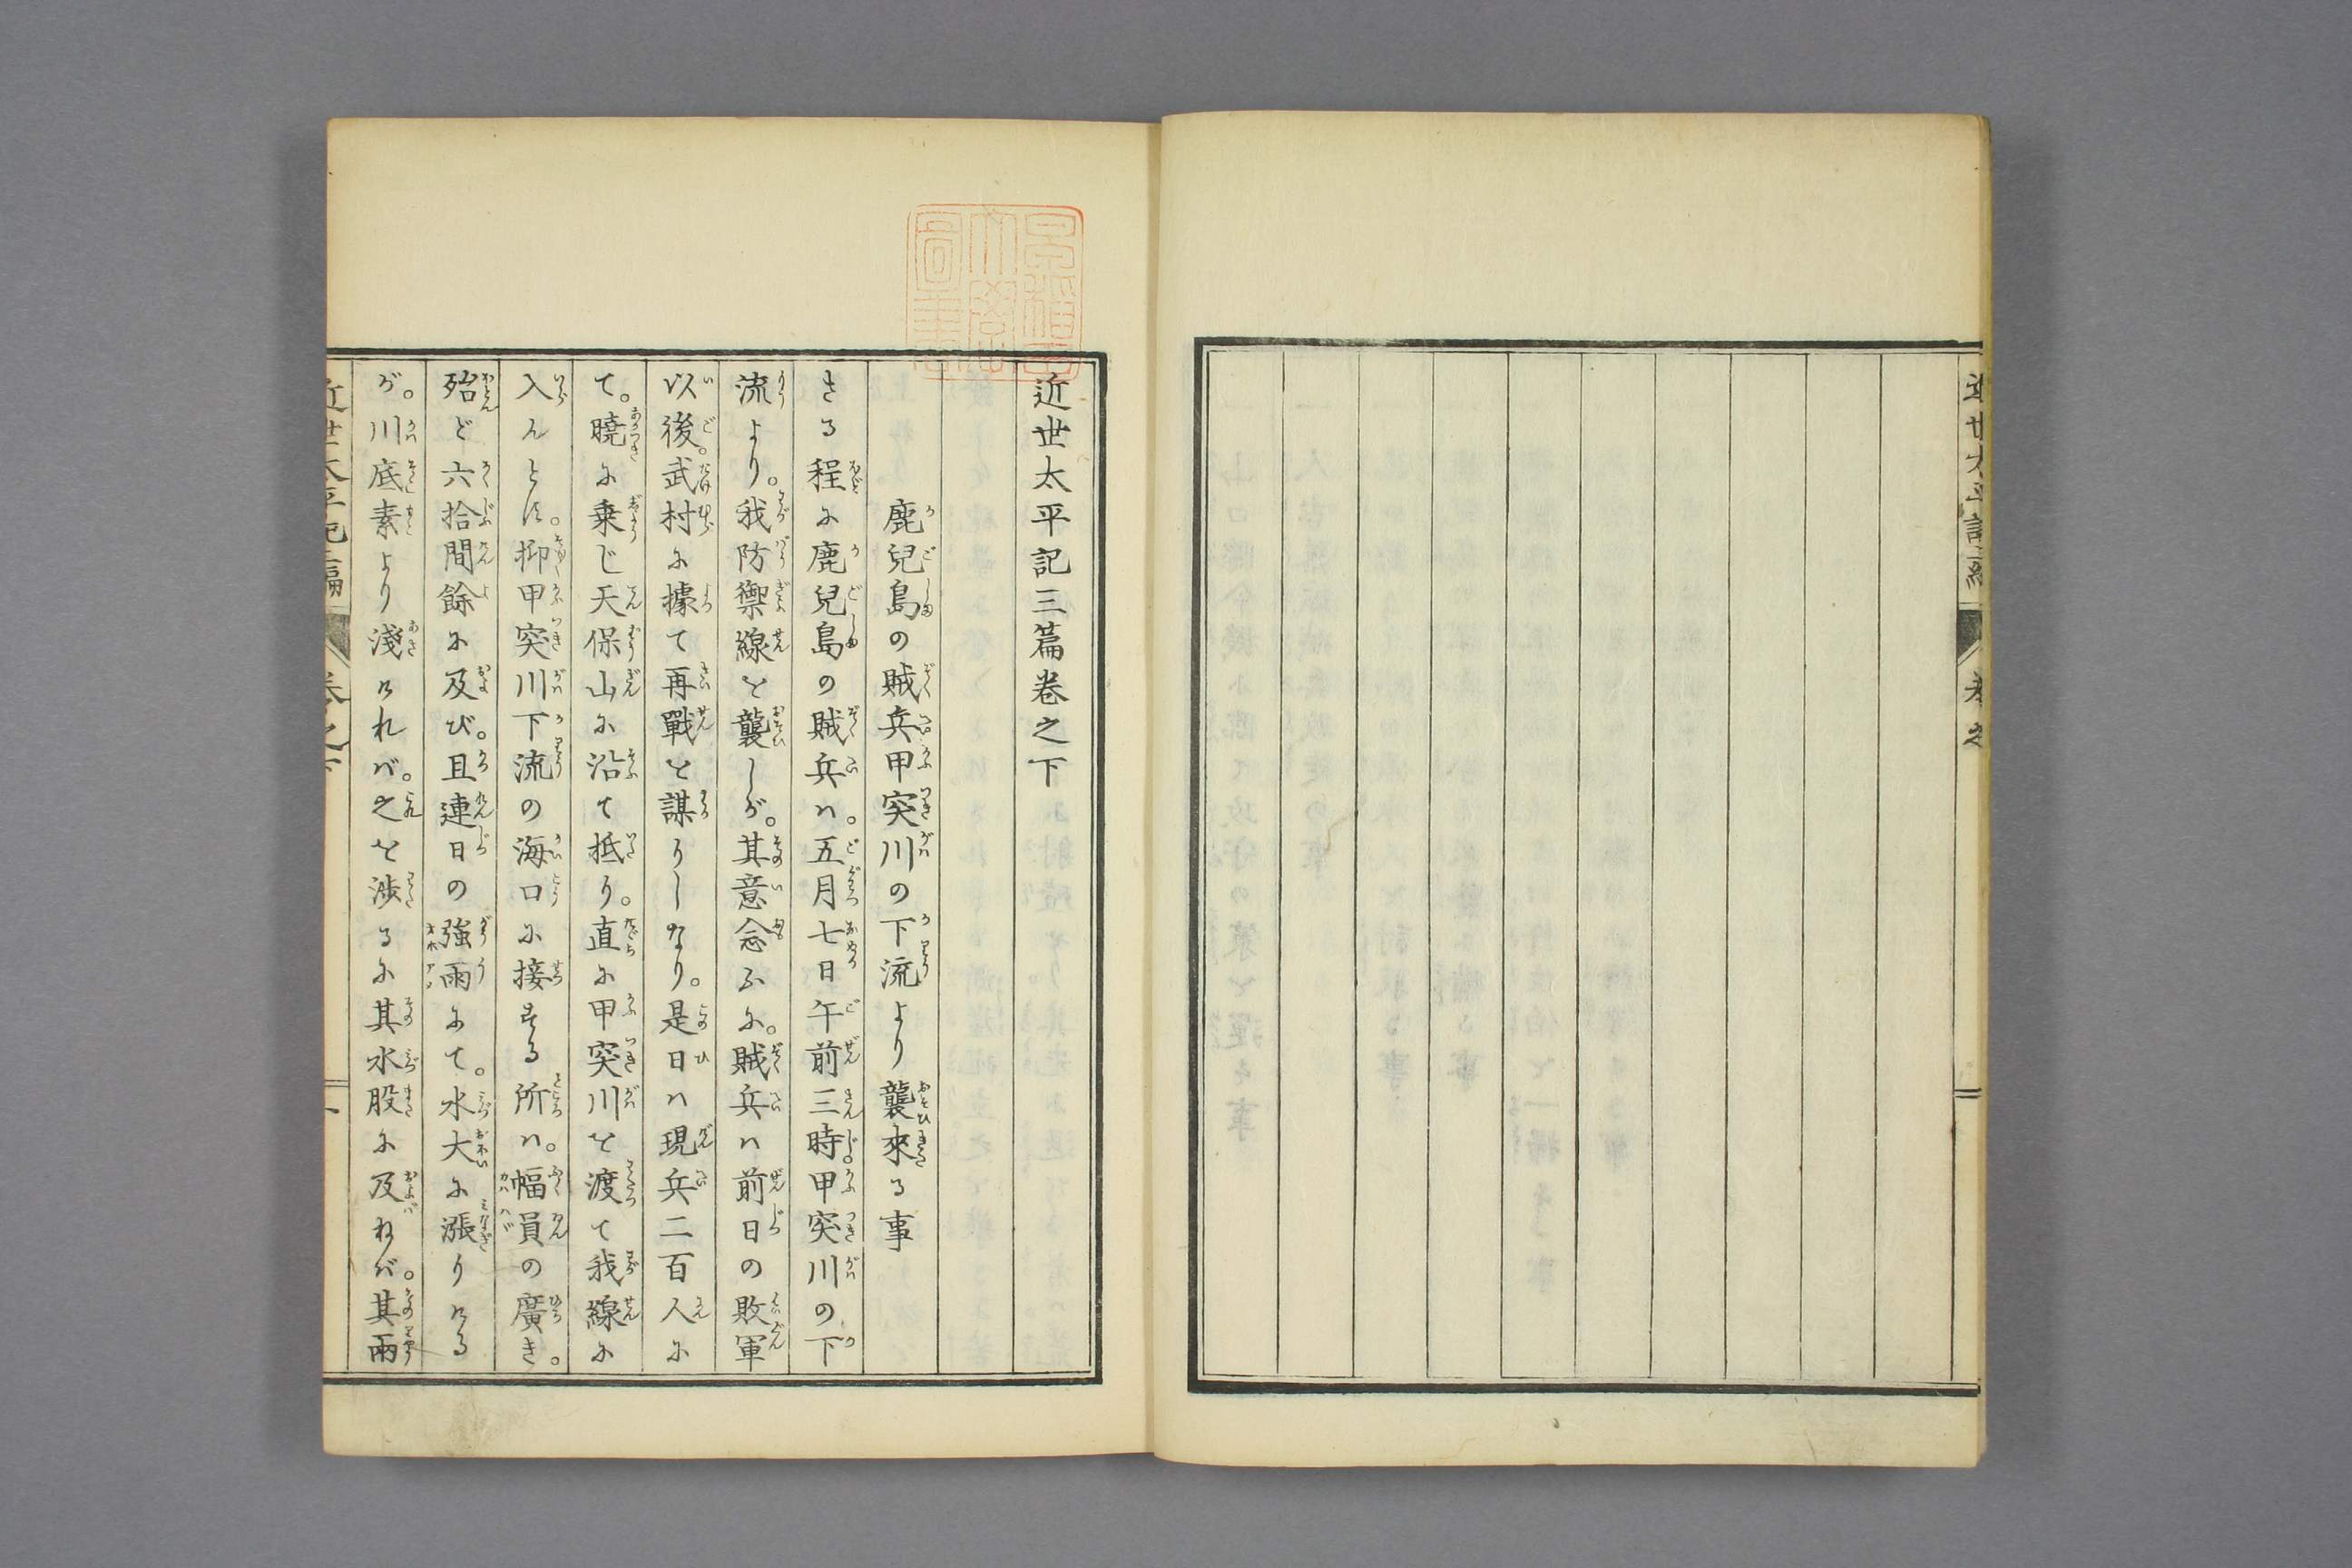 近世太平記三篇卷之下
鹿兒島の賊兵甲突川の下流より襲來る事
さる程に鹿兒島の賊兵ハ。五月七日午前三時甲突川の下
流より。我防禦線を襲しが。其意念ふに。賊兵ハ前日の敗軍
以後。武村に據て再戰を謀りしなり。是日ハ現兵二百人に
て。曉に乗じ天保山に沿て抵り。直に甲突川を渡て我線に
入んとす。抑甲突川下流の海口に接する所ハ。幅員の廣き。
殆ど六拾間餘に及び。且連日の強雨にて。水大に漲りける
が。川底素より淺ければ。之を渉るに其水股に及ねば。其兩